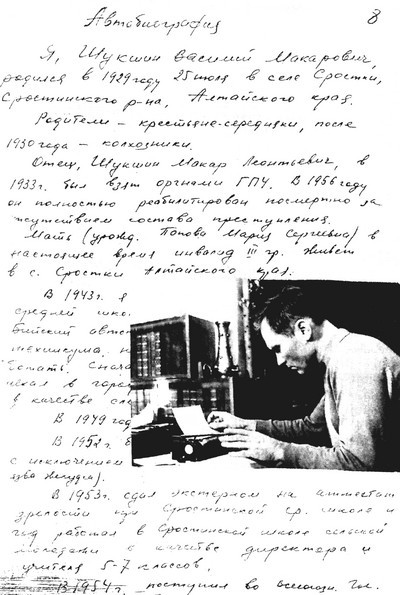 Автобиография
8
Я, Шукшин Василий Макарович,
родился в 1929 году 25 июля в селе Сростки,
Сростинского р-на, Алтайского края.
Родители – крестьяне-середняки, после
1930 года – колхозники.
Отец, Шукшин Макар Леонтьевич, в
1933 г. был взят органами ГПУ. В 1956 году
он полностью реабилитирован посмертно за
отсутствием состава преступления.
Мать (урожд. Попова Мария Сергеевна) в
настоящее время инвалид III гр. живет
в с. Сростки Алтайского края.
В 1943 г. я
средней шко
Бийский авто
техникума. Н
ботать. Снача
в качестве сле
В 1949 год
В 1952 г.
с исключением
язва желудка).
В 1953 г. сдал экстерном на аттестат
зрелости при Сростинской ср. школе и
год работал в Сростинской школе сельской
молодежи в качестве директора и
учителя 5-7 классов.
В 1954 поступил во Всесоюзн. Гос.